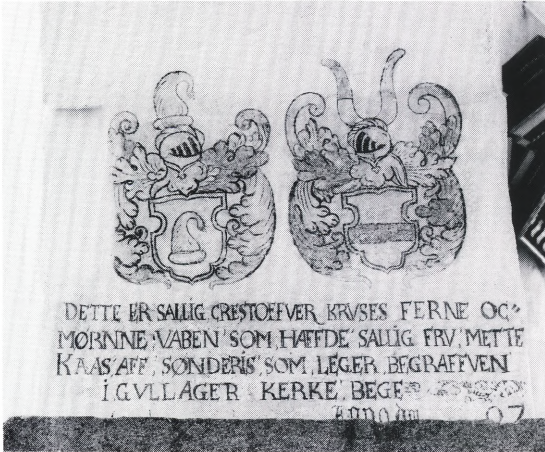 DETTE ER SALLIG CRESTOFFVER KRVSES FERNE OC
MØRNNE VABEN SOM HAFFDE SALLIG FRV METTE
KAAS AFF SØNDERIS SOM LEGER BEGRAFFVEN
I GVLLAGER KERKE BEGE
Anno 97